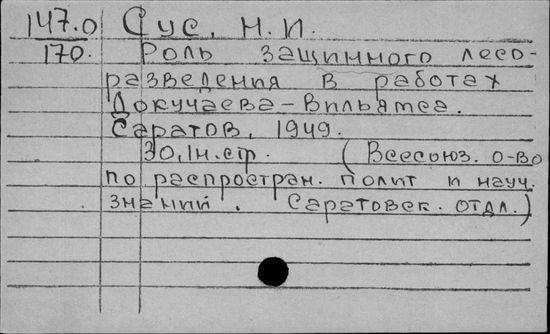 147.0 Сус, Н.И.
170. Роль защинмого лесо-
разведения в работах
Докучаева-Вильямса.
Саратов, 1949.
30,1н.стр. (Всесоюз. о-во
по распростран. полит и науч.
знаний. Саратовск. отдл.)